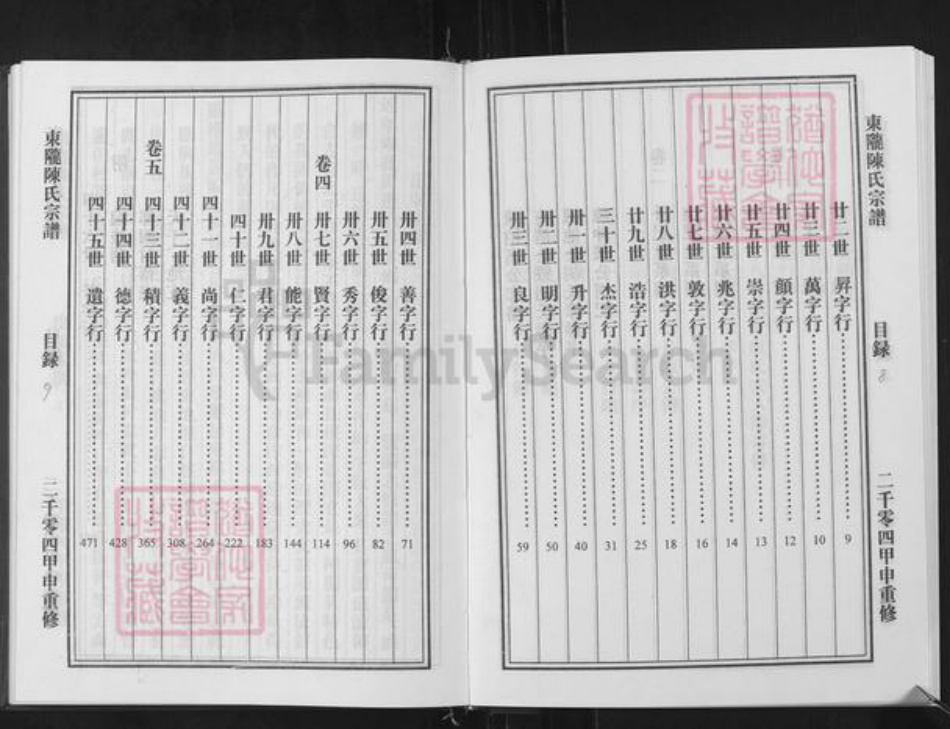 東隴陳氏宗譜
目錄
8
二千零四甲申重修
廿二世 昇字行 9
廿三世 萬字行 10
廿四世 顏字行 12
廿五世 崇字行 13
廿六世 兆字行 14
廿七世 敦字行 16
廿八世 洪字行 18
廿九世 浩字行 25
三十世 杰字行 31
卅一世 升字行 40
卅二世 明字行 50
卅三世 良字行 59
卅四世 善字行 71
卅五世 俊字行 82
卅六世 秀字行 96
卷四
卅七世 賢字行 114
卅八世 能字行 144
卅九世 君字行 183
四十世 仁字行 222
四十一世 尚字行 264
四十二世 義字行 308
卷五
四十三世 積字行 365
四十四世 德字行 428
四十五世 遺字行 471
東隴陳氏宗譜
目錄
9
二千零四甲申重修
FamilySearch